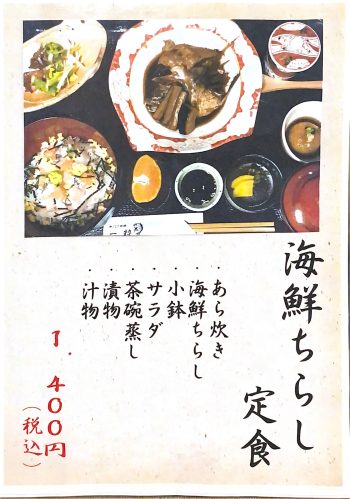 海鮮ちらし
定食
・あら炊き
・海鮮ちらし
・小鉢
・サラダ
・茶碗蒸し
・漬物
・汁物
1.400円
(税込)